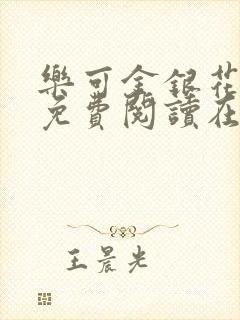 樂可金銀花
免費閱讀在
王晨光